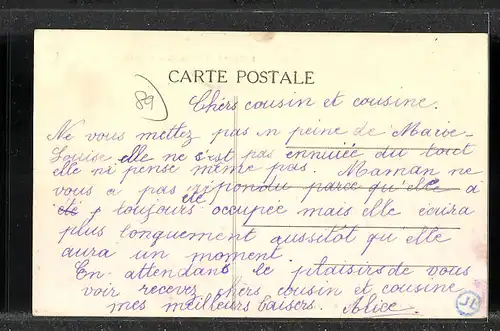 CARTE POSTALE
89
Chers cousin et cousine.
Ne vous mettez pas en peine de Marie-
Louise elle ne s'est pas ennuiée du tout
elle ni pense même pas. Maman ne
vous a pas répondu parce qu'elle a
été toujours occupée mais elle écrira
plus longuement aussitôt qu'elle
aura un moment.
En attendant le plaisirs de vous
voir recevez chers cousin et cousine
mes meilleurs baisers. Alice.
JL